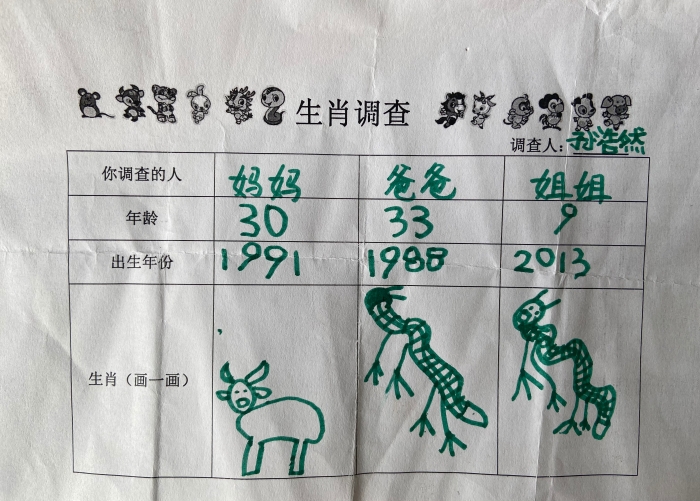 生肖调查
调查人：孙浩然
你调查的人 妈妈 爸爸 姐姐
年龄 30 33 9
出生年份 1991 1988 2013
生肖（画一画）